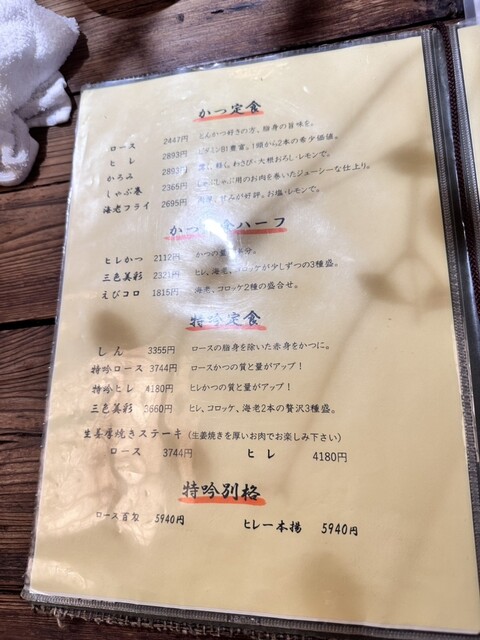 かつ定食
ロース 2447円 とんかつ好きの方、脂身の旨味を。
ヒレ 2893円 ビタミンB1豊富。1頭から2本の希少価値。
かろみ 2893円 軽くわさび・大根おろし・レモンで。
しゃぶ巻 2365円 しゃぶしゃぶ用のお肉を巻いたジューシーな仕上り。
海老フライ 2695円 甘みが好評。お塩・レモンで。
かつ定食ハーフ
ヒレかつ 2112円 かつの量が半分。
三色美彩 2321円 ヒレ、海老、コロッケが少しずつの3種盛。
えびコロ 1815円 海老、コロッケ2種の盛合せ。
特吟定食
しん 3355円 ロースの脂身を除いた赤身をかつに。
特吟ロース 3744円 ロースかつの質と量がアップ！
特吟ヒレ 4180円 ヒレかつの質と量がアップ！
三色美彩 3660円 ヒレ、コロッケ、海老2本の贅沢3種盛。
生姜厚焼きステーキ（生姜焼きを厚いお肉でお楽しみ下さい）
ロース 3744円 ヒレ 4180円
特吟別格
ロース百匁 5940円 ヒレ一本揚 5940円